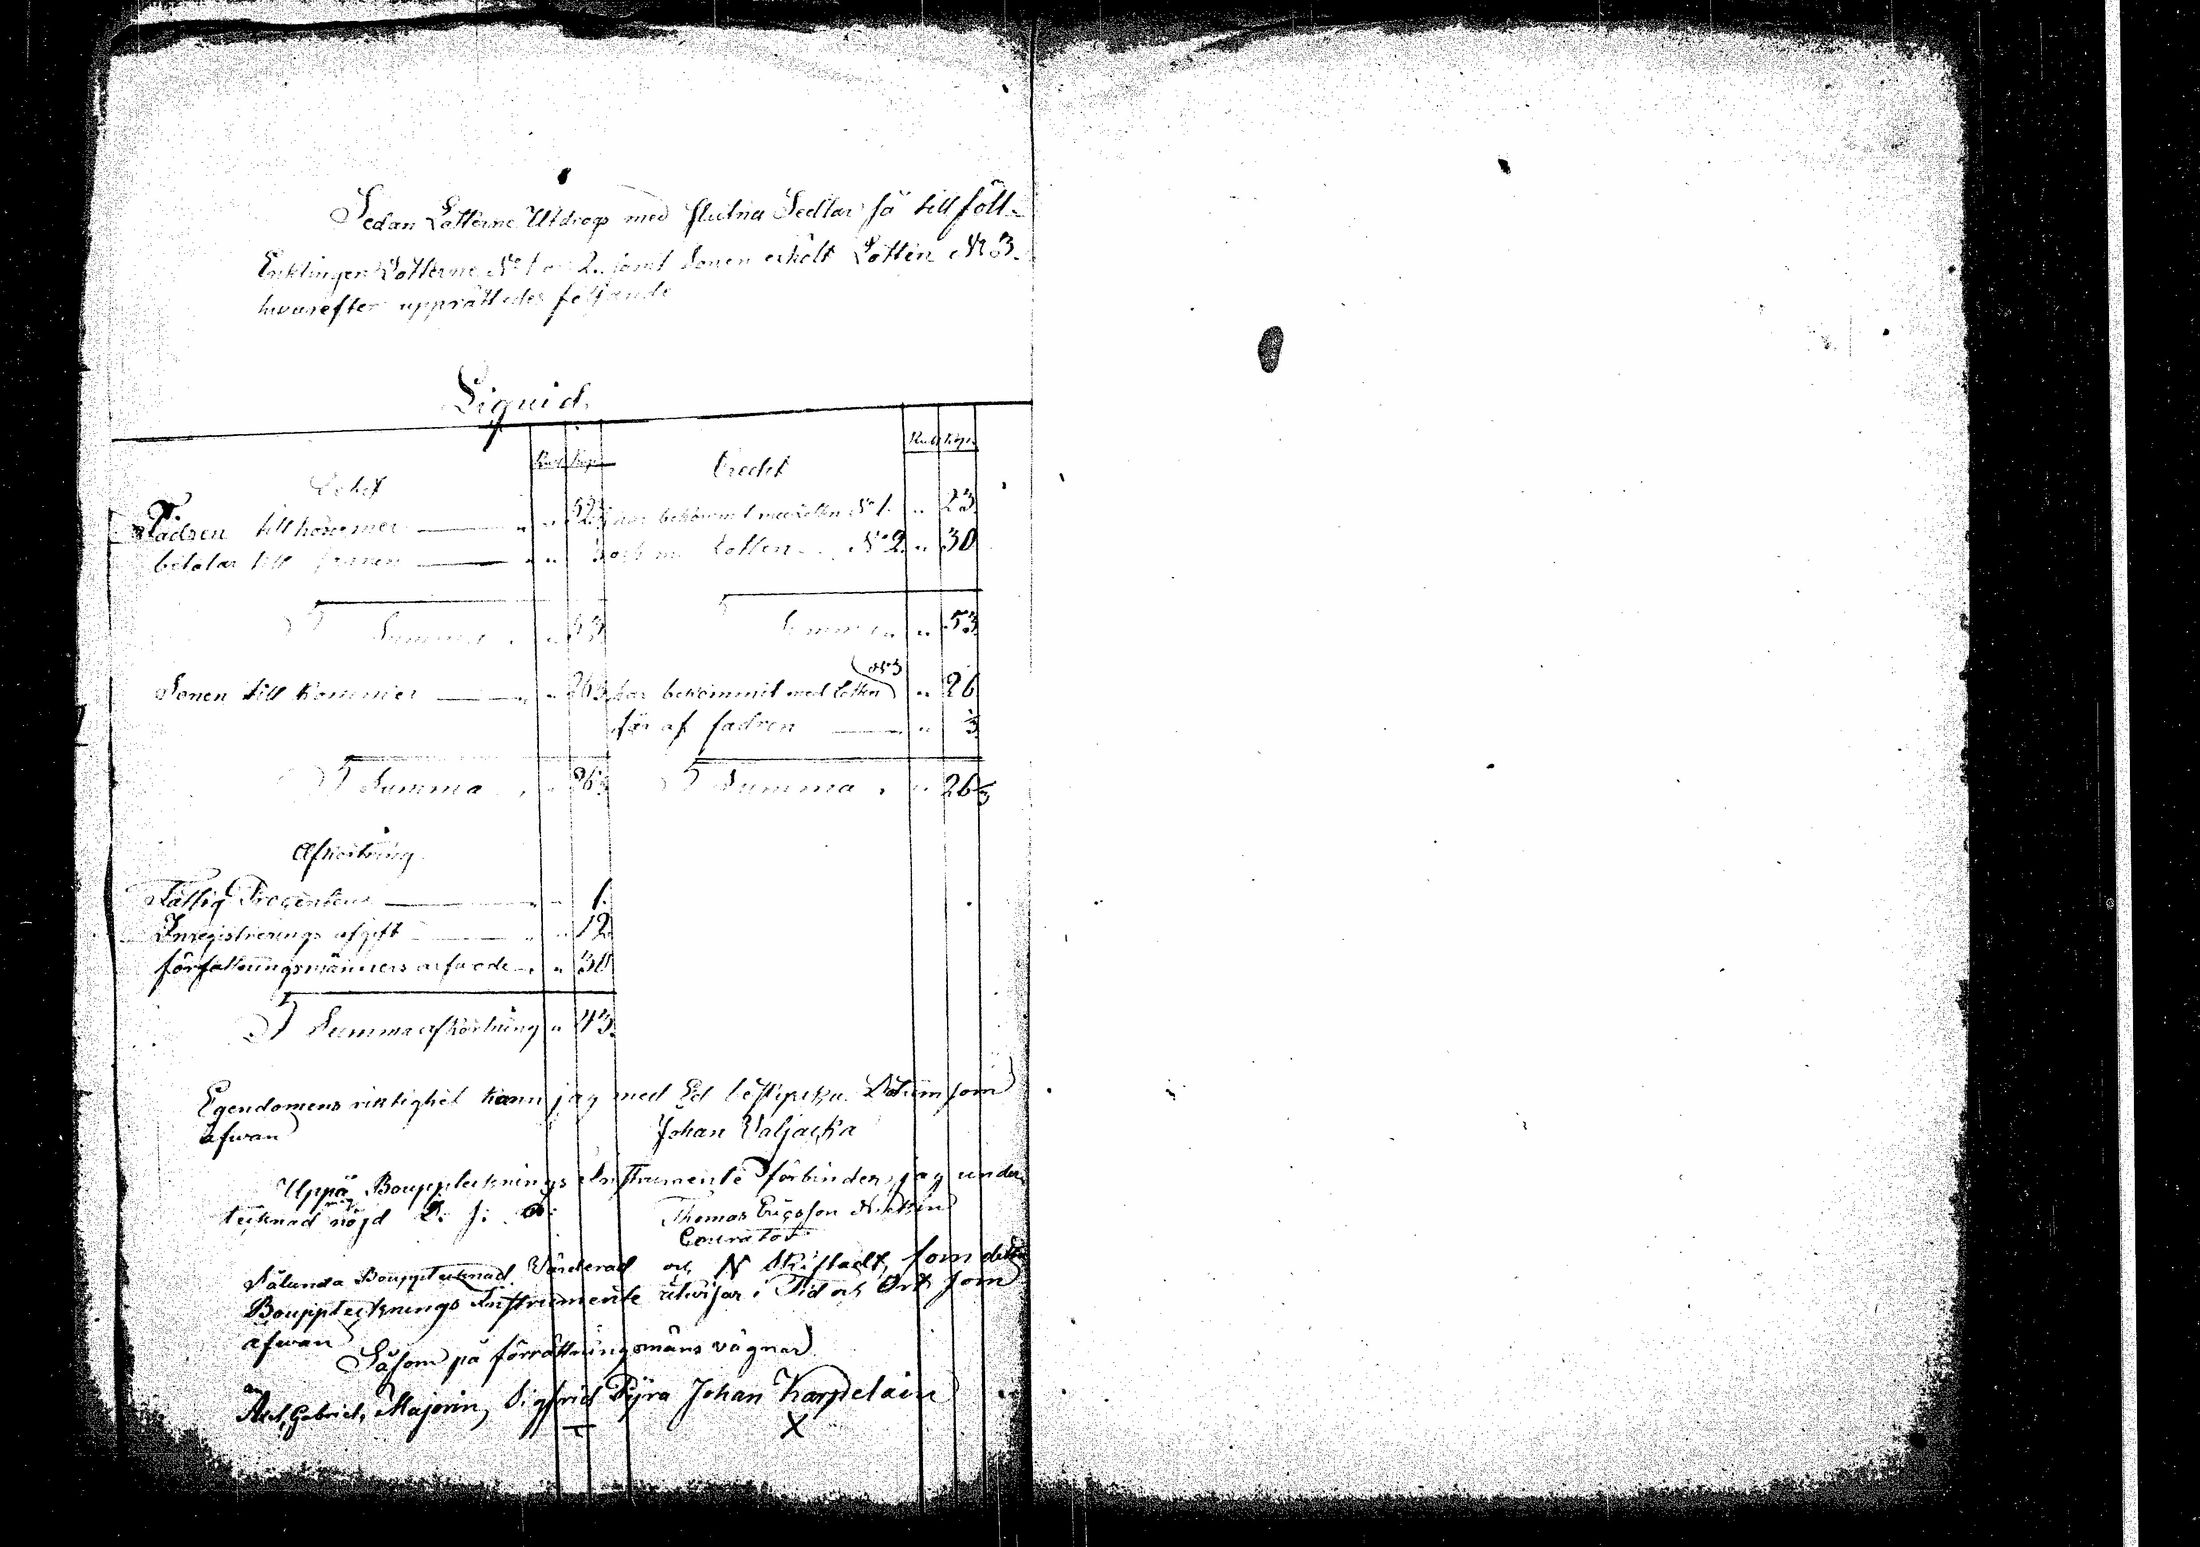 Sedan Lotterne Utdrogs med slutna Sedlar så tillföll
Enklingen Lotterne No 1 oc 2. samt Sonen erhölt Lotten No 3.
hvarefter upprättedes följande
Liquid.
Debet Rub Kop. Credit Rub Kop.
Fadren tillkommer „ „ 52⅔ har bekommit med Lotten No 1. „ 23.
betalar till sonen „ „ ⅓ och m Lotten No 2. „ 30
Summa „ „ 53. Summa „ 53
Sonen till kommer „ „ 26⅓ har bekommit med Lotten No 3 „ 26
får af fadren „ ⅓
Summa „ „ 26⅓ Summa „ 26⅓
Afkortning
Fattig Procenten „ „ 1.
Inregistrerings afgift „ „ 12.
författningsmänners arfvode „ „ 30
Summa afkortning „ 43.
Egendomens riktighet kann jag med Ed bestyrka Datum som
ofwan Johan Valjacka
Uppå Bouppteknings Instrumente förbinder jag under
teknad mig nöjd Thomas Ericsson
Curator
Sålunda Boupptecknad Värderad och skiftadt, som detta
Boupptecknings Instrumente utvisar i Tid och Ort som
ofwan
Såsom på förrättningsmäns vägnar
Axel, Gabriel, Majorin, Sigfrid Pyra Johan Karpelain
X